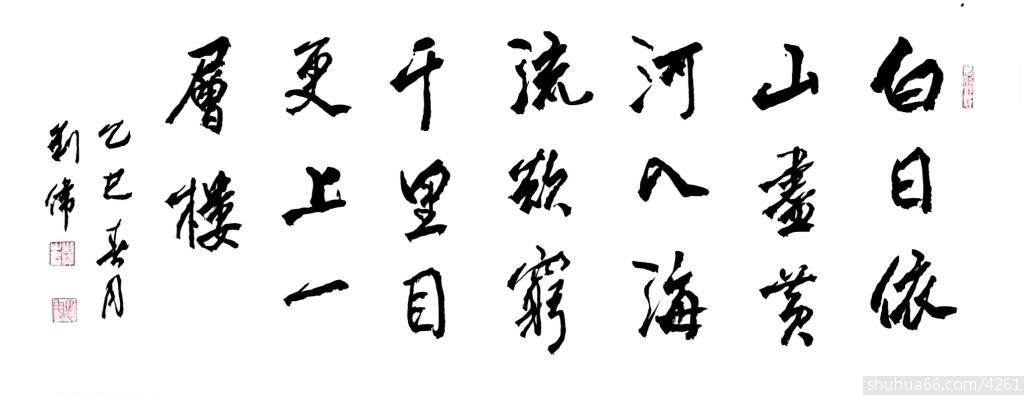 白日依
山盡黄
河入海
流欲窮
千里目
更上一
層樓
乙巳春月
刘偉
shuhua66.com/4261